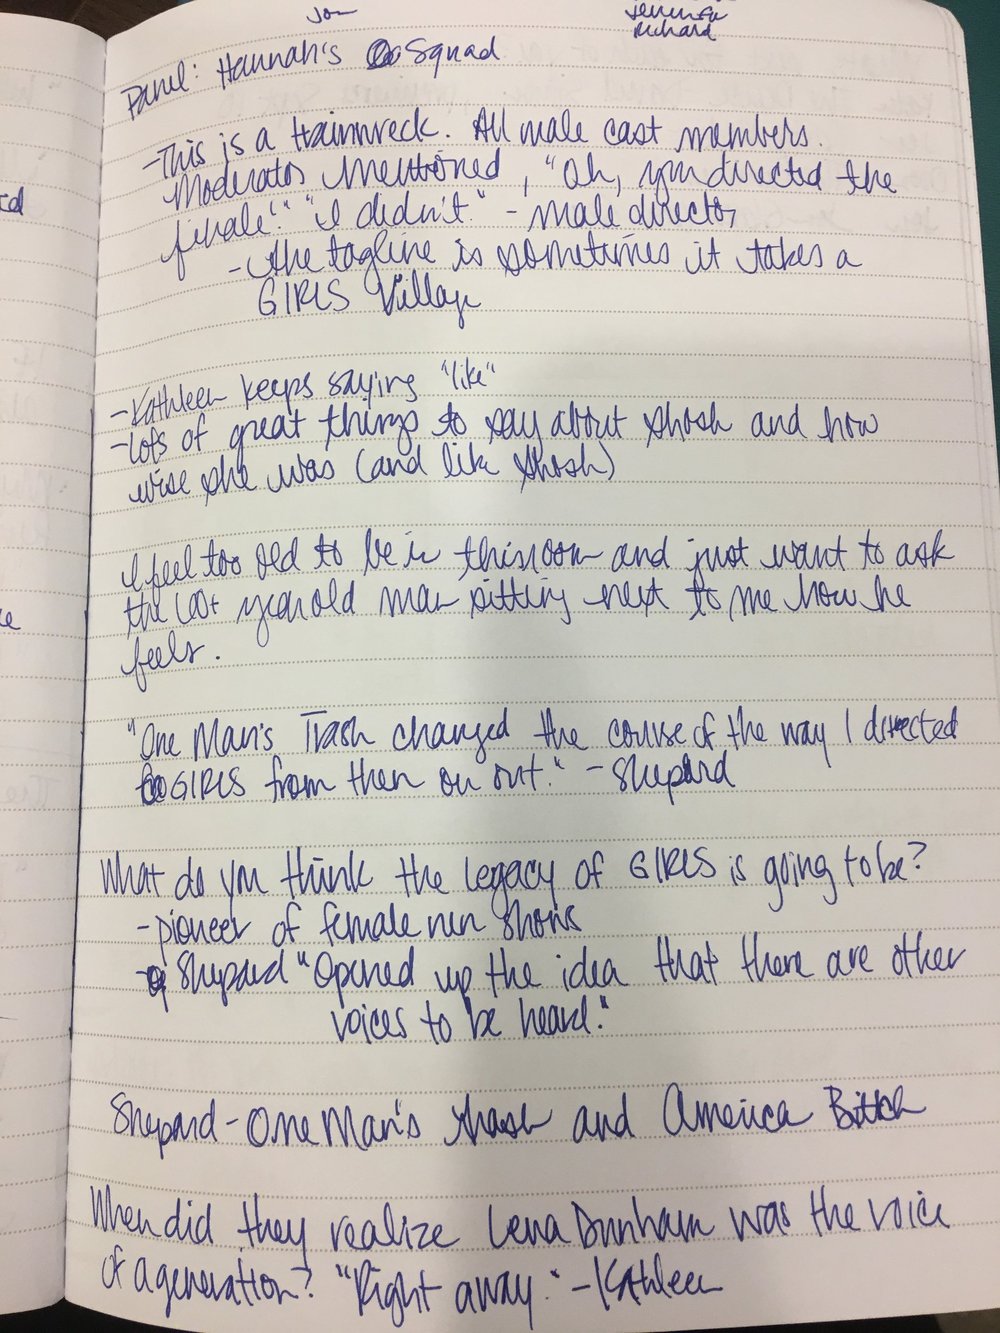 Jon
Jennifer
Richard
Panel: Hannah's Squad
-This is a trainwreck. All male cast members.
Moderator mentioned, "Oh, you directed the
finale!" "I didn't." - male director
-The tagline is sometimes it takes a
GIRLS Village
-Kathleen keeps saying "like"
-lots of great things to say about Shosh and how
wise she was (and like Shosh)
I feel too old to be in this room and just want to ask
the 100+ year old man sitting next to me how he
feels.
"One Man's Trash changed the course of the way I directed
GIRLS from then on out." - Shepard
What do you think the legacy of GIRLS is going to be?
-pioneer of female run shows
- Shepard "Opened up the idea that there are other
voices to be heard."
Shepard - One Man's Trash and America Bitch
When did they realize Lena Dunham was the voice
of a generation? "Right away." - Kathleen